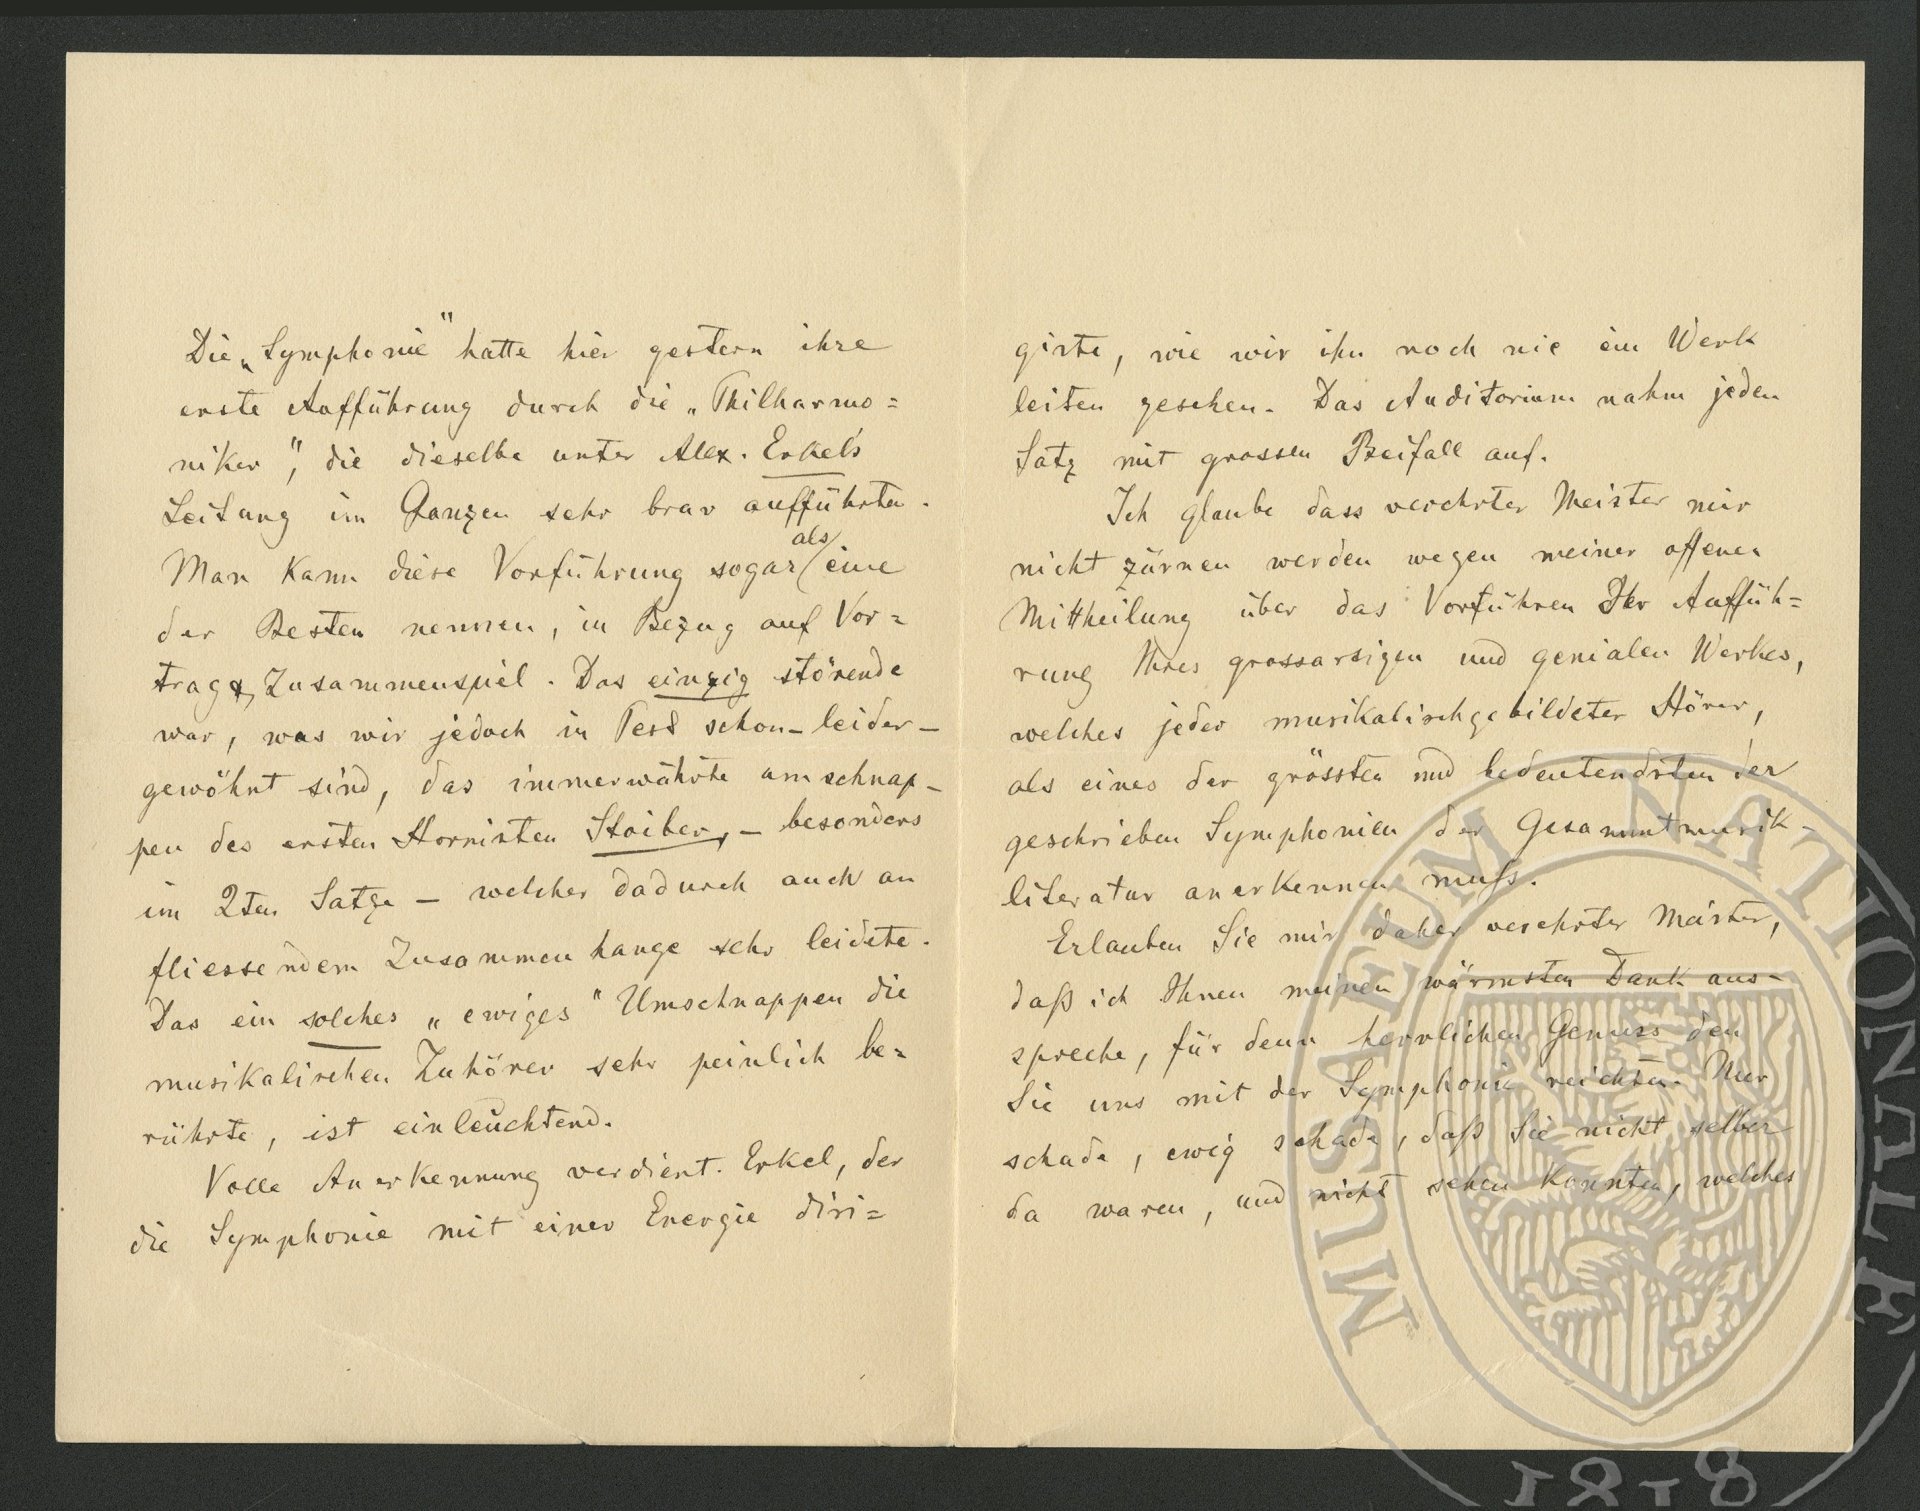 Die „Symphonie" hatte hier gestern ihre
erste Aufführung durch die „Philharmo=
niker", die dieselbe unter Alex. Erkel's
Leitung im Ganzen sehr brav aufführten.
Man kann diese Vorführung sogar als eine
der Besten nennen, in Bezug auf Vor=
trag & Zusammenspiel. Das einzig störende
war, was wir jedoch in Pest schon – leider –
gewöhnt sind, das immerwährte umschnap-
pen des ersten Hornisten Stoiber, – besonders
im 2ten Satze – welcher dadurch auch an
fliessendem Zusammenhange sehr leidete.
Das ein solches „ewiges" Umschnappen die
musikalischen Zuhörer sehr peinlich be=
rührte, ist einleuchtend.
Volle Anerkennung verdient Erkel, der
die Symphonie mit einer Energie diri=
girte, wie wir ihn noch nie ein Werk
leiten gesehen. Das Auditorium nahm jeden
Satz mit grossen Beifall auf.
Ich glaube dass verehrter Meister mir
nicht zürnen werden wegen meiner offenen
Mittheilung über das Vorführen Der Auffüh=
rung Ihres grossartigen und genialen Werkes,
welches jeder musikalischgebildeter Hörer,
als eines der grössten und bedeutendsten der
geschrieben Symphonien der Gesammtmusik-
literatur anerkennen muß.
Erlauben Sie mir daher verehrter Meister,
daß ich Ihnen meinen wärmsten Dank aus-
spreche, für denn herrlichen Genuss den
Sie uns mit der Symphonie reichten. Nur
schade, ewig schade, daß Sie nicht selber
da waren, und nicht sehen konnten, welches
MUSAEUM NATIONALE
1818